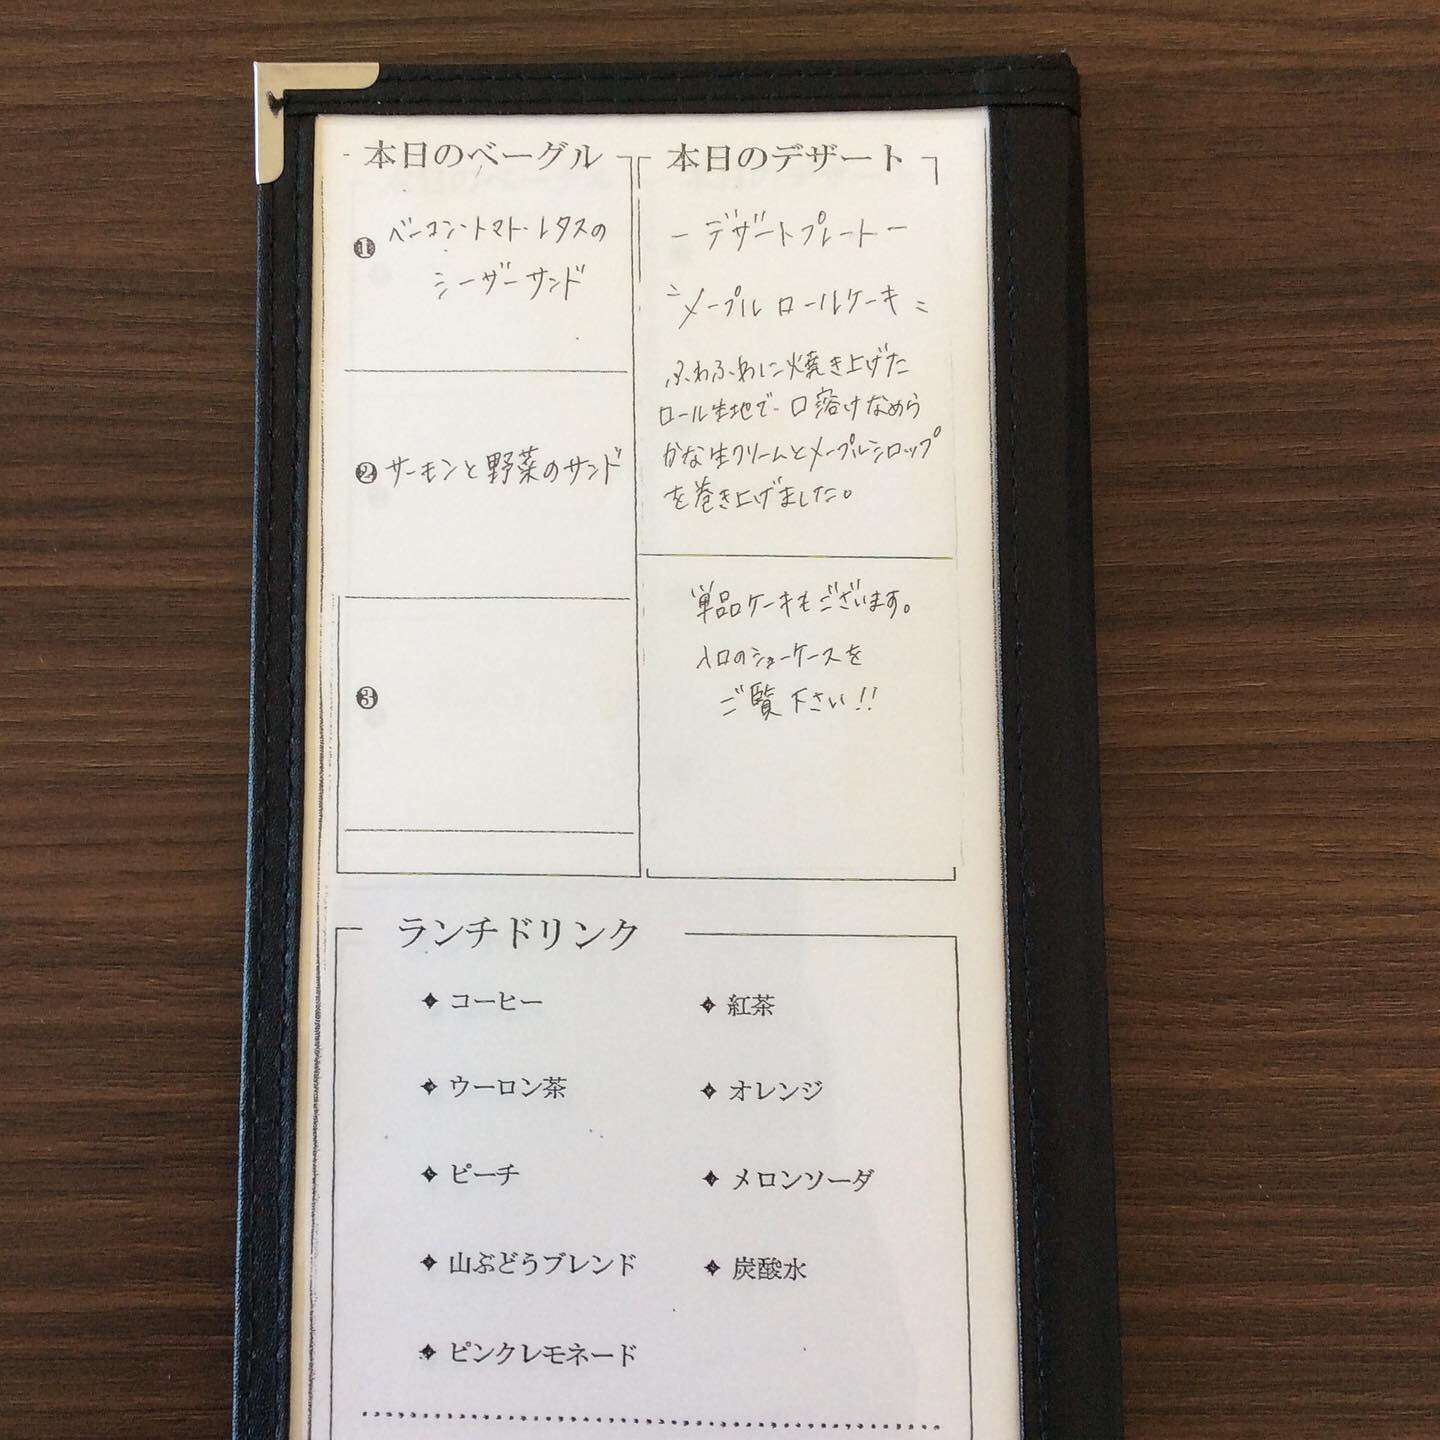 本日のベーグル
❶ ベーコン・トマト・レタスの
シーザーサンド
❷ サーモンと野菜のサンド
❸
本日のデザート
ー デザートプレート ー
= メープル ロールケーキ =
ふわふわに焼き上げた
ロール生地で、口溶けなめら
かな生クリームとメープルシロップ
を巻き上げました。
単品ケーキもございます。
入口のショーケースを
ご覧下さい!!
ランチドリンク
コーヒー
紅茶
ウーロン茶
オレンジ
ピーチ
メロンソーダ
山ぶどうブレンド
炭酸水
ピンクレモネード